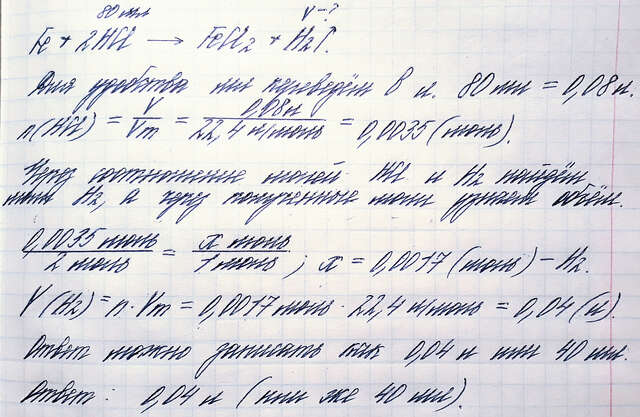 80 мл V-?
Fe + 2HCl → FeCl₂ + H₂↑.
Для удобства мл переведём в л. 80 мл = 0,08 л.
n(HCl) = V/Vm = 0,08 л/22,4 л/моль = 0,0035 (моль).
Через соотношение молей HCl и H₂ найдём
моли H₂, а через полученные моли узнаем объём.
0,0035 моль/2 моль = x моль/1 моль ; x = 0,0017 (моль) - H₂.
V(H₂) = n · Vm = 0,0017 моль · 22,4 л/моль = 0,04 (л).
Ответ можно записать как 0,04 л или 40 мл.
Ответ: 0,04 л (или же 40 мл)